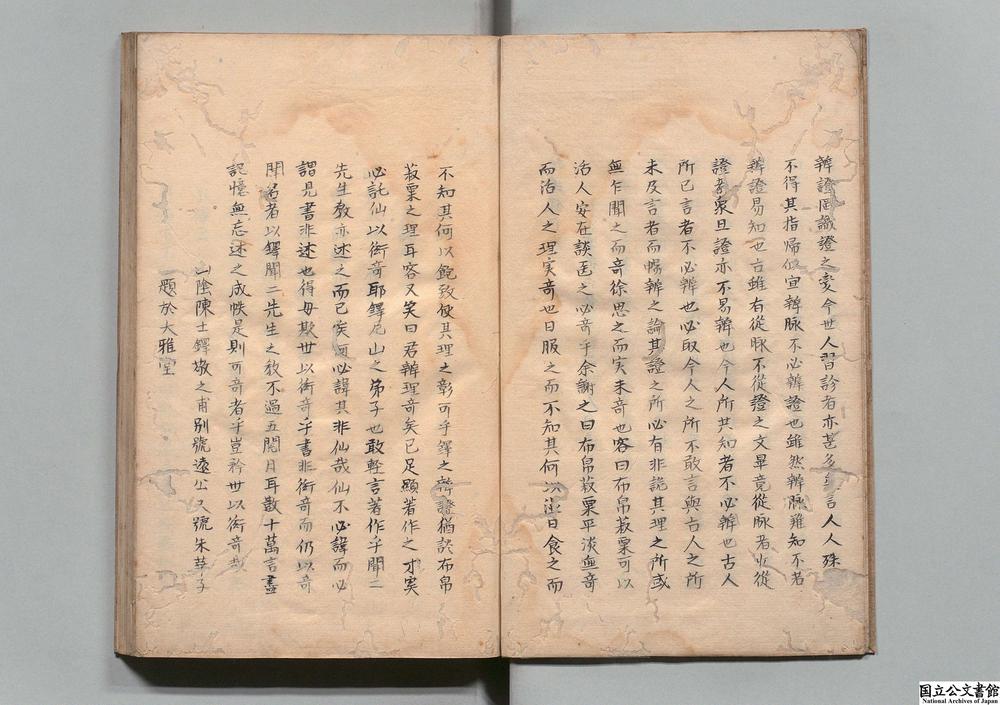 辯證罔識證之變今世人習診者亦甚多言人人殊
不得其指歸似宜辯脉不必辯證也雖然辯脉難知不若
辯證易知也古雖有從脉不從證之文畢竟從脉者少從
證者衆且證亦不易辯也今人所共知者不必辯也古人
所已言者不必辯也必取今人之所不敢言與古人之所
未及言者而暢辯之論其證之所必有非詭其理之所或
無乍聞之而竒徐思之而实未竒也客曰布帛菽粟可以
活人安在談醫之必竒乎余謝之曰布帛菽粟平淡無竒
而治人之理实竒也日服之而不知其何以温日食之而
不知其何以飽致使其理之彰可乎鐸之辯證猶談布帛
菽粟之理耳客又笑曰君辯理竒矣已足顯著作之才实
必託仙以衒竒耶鐸尼山之弟子也敢輕言著作乎聞二
先生教亦述之而已矣何必諱其非仙哉仙不必諱而必
謂見書非述也得毋欺世以衒竒乎書非衒竒而仍以竒
聞名者以鐸聞二先生之教不過五閱月耳數十萬言盡
記憶無忘述之成帙是則可竒者乎豈矜世以衒竒哉
山陰陳士鐸敬之甫別號遠公又號朱華子
題於大雅堂
国立公文書館
National Archives of Japan